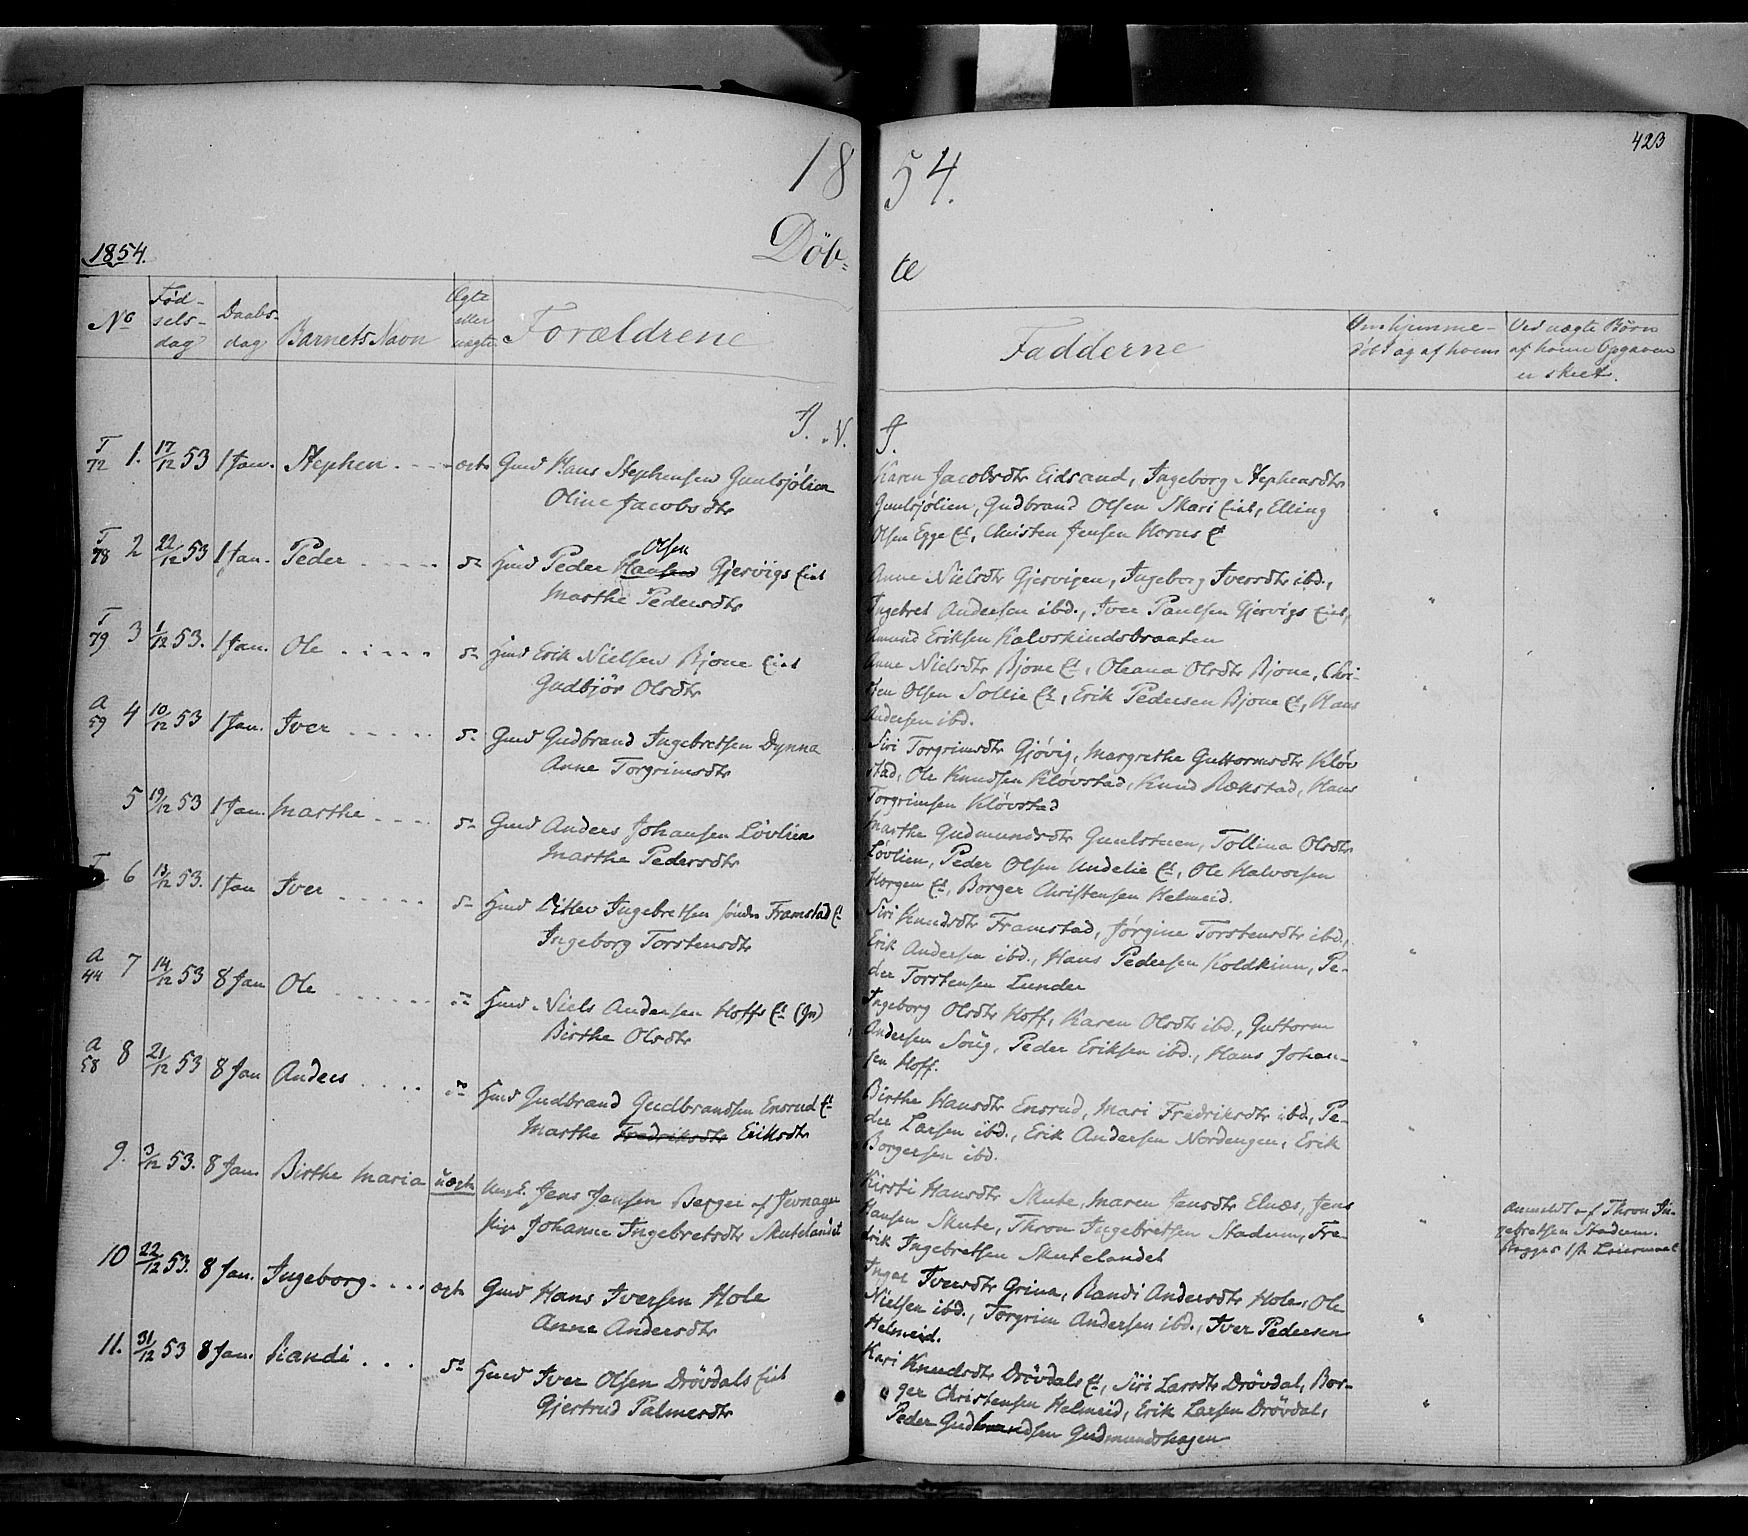 423
18 54.
1854.
Döb- te
No
Fød-
sels-
dag
Daabs-
dag
Barnets Navn
Ægte
eller
uægte
Forældrene
Fadderne
Om hjemme-
døbt og af hvem
Ved uægte Børn
af hvem Opgaven
er skeet.
J. N. J.
T
72 1. 17/12 53 1 Jan. Stephen ægte Gmd Hans Stephensen Gunlsjölien
Oline Jacobsdtr
Karen Jacobsdtr Eidsand, Ingeborg Stephensdtr
Gunlsjölien, Gudbrand Olsen Skari Eiet, Elling
Olsen Egge Et, Christen Jensen Horns Et
T
78 2 22/12 53 1 Jan. Peder do Hmd Peder Hansen Olsen Gjervigs Eiet
Marthe Pedersdtr
Anne Nielsdtr Gjervigen, Ingeborg Iversdtr ibd.,
Ingebret Andersen ibd., Iver Paulsen Gjervigs Eiet,
Amund Eriksen Kalvskindsbraaten
T
79 3 1/12 53. 1 Jan. Ole do Hmd Erik Nielsen Bjone Eiet
Gudbjör Olsdtr
Anne Nielsdtr Bjone Et, Oleana Olsdtr Bjone, Chri-
sten Olsen Sollie Et, Erik Pedersen Bjone Et, Hans
Andersen ibd.
A
59 4 10/12 53 1 Jan. Iver do Gmd Gudbrand Ingebretsen Dynna
Anne Torgrimsdtr
Siri Torgrimsdtr Gjövig, Margrethe Guttormsdtr Klöv
stad, Ole Knudsen Klövstad, Knud Rækstad, Hans
Torgrimsen Klövstad
5 19/12 53 1 Jan. Marthe do Gmd Anders Johansen Lövlien
Marthe Pedersdtr
Marthe Gudmundsdtr Gunlstuen, Tollina Olsdtr
Lövlien, Peder Olsen Undelie Et, Ole Halvorsen
Horgen Et, Borger Christensen Helmeid.
T 6 13/12 53. 1 Jan Iver do Hmd Ditlev Ingebretsen söndre Framstad Et
Ingeborg Torstensdtr
Siri Knudsdtr Framstad, Jörgine Torstensdtr ibd.,
Erik Andersen ibd., Hans Pedersen Koldkinn, Pe-
der Torstensen Lunder
A
44 7 14/12 53 8 Jan Ole do Hmd Niels Andersen Hoffs Et (Jn)
Birthe Olsdtr
Ingeborg Olsdtr Hoff, Karen Olsdtr ibd., Guttorm
Andersen Söug, Peder Eriksen ibd., Hans Johan-
sen Hoff.
A
58 8 21/12 53 8 Jan Anders do Hmd Gudbrand Gudbrandsen Ensrud Et
Marthe Fredriksdtr Eriksdtr
Birthe Hansdtr Ensrud, Mari Fredriksdtr ibd, Pe-
der Larsen ibd., Erik Andersen Nordengen, Erik
Borgersen ibd.
9. 3/12 53. 8 Jan. Birthe Maria uægte Ungk. Jens Jensen Berger af Jevnager
Pige Johanne Ingebretsdtr Skutelandet
Kirsti Hansdtr Skute, Maren Jensdtr Elnæs, Jens
Hansen Skute, Thron Ingebretsen Stadum, Fre-
drik Ingebretsen Skutelandet
Anmeldt af Thron In-
gebretsen Stadum.
Begges 1st Leiermaal
10 22/12 53. 8 Jan. Ingeborg ægte Gmd Hans Iversen Hole
Anne Andersdtr
Inger Iversdtr Grina, Randi Andersdtr Hole, Ole
Nielsen ibd., Torgrim Andersen ibd., Iver Pedersen
Helmeid.
11. 31/12 53 8 Jan. Randi do Hmd Iver Olsen Drövdals Eiet
Gjertrud Palmersdtr
Kari Knudsdtr Drövdals Et, Siri Larsdtr Drövdal, Bor-
ger Christensen Helmeid, Erik Larsen Drövdal,
Peder Gudbrandsen Gudmundshagen